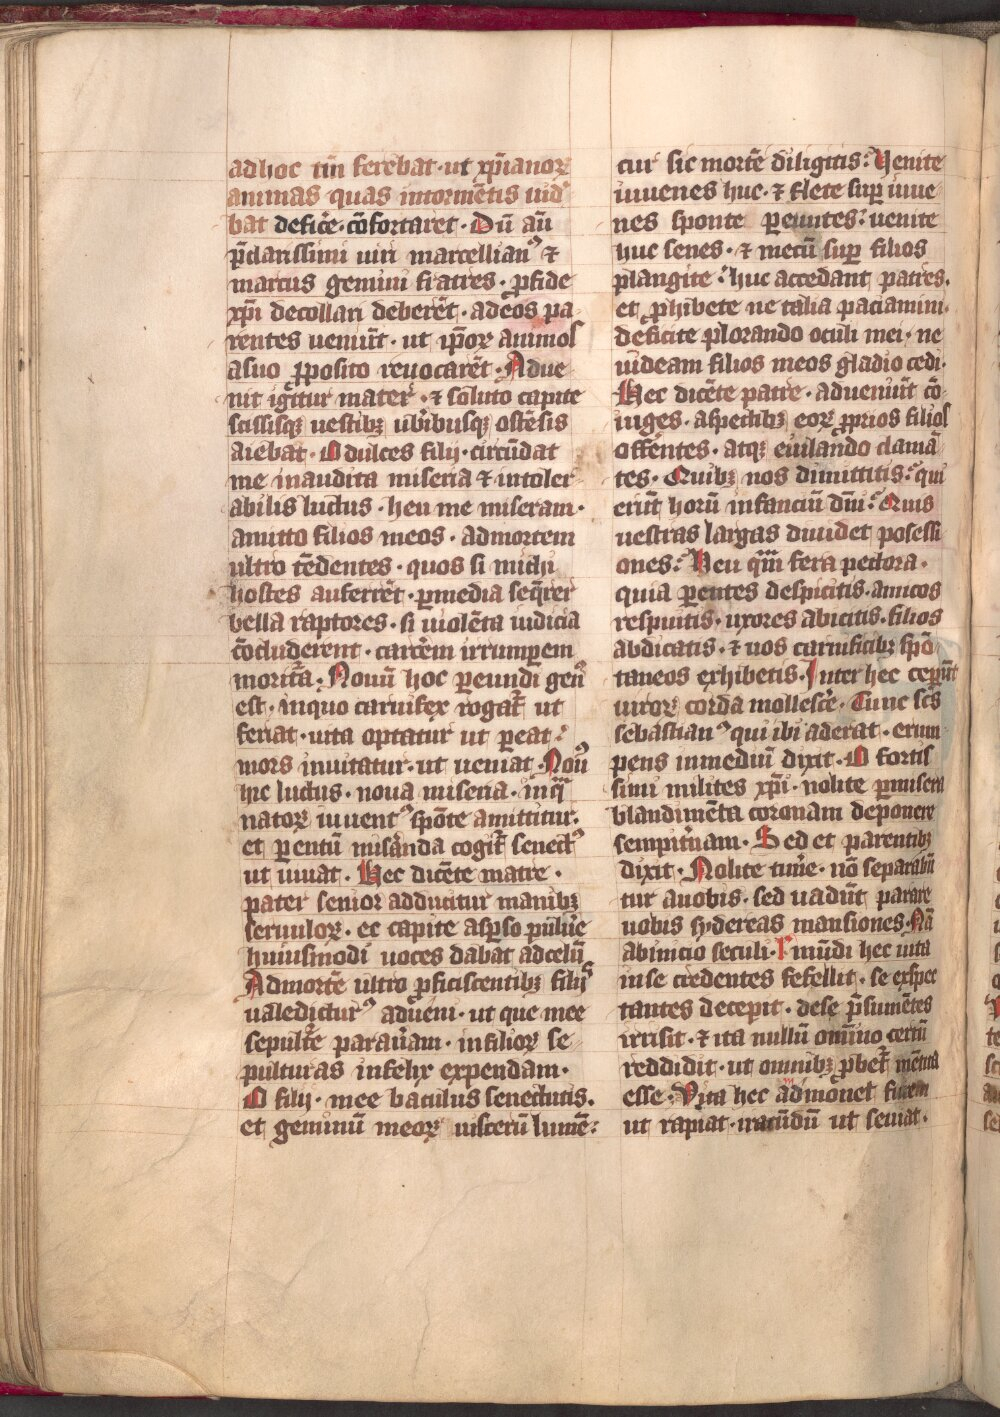 adhoc tm̄ ferebat · ut xp̄ianoꝝ
animas quas intormētis uid᷑
bat defic̄e · cōfortaret · Dū aū
p̄clarissimi uiri marcellianꝰ ⁊
marcus gemini fratres · ꝓfide
xp̄i decollari deberēt · adeos pa
rentes ueniūt · ut ip̄oꝝ animos
asuo ꝓposito reuocarēt · Adue
nit igitur mater · ⁊ soluto capite
scissisqꝫ uestibꝫ ub̄ibusqꝫ ostēsis
aiebat · O dulces filij · circūdat
me inaudita miseria ⁊ intoler
abilis luctus · heu me miseram ·
amitto filios meos · admortem
ultro tēdentes · quos si michi
hostes auferrēt · ꝑmedia seq̄rer
bella raptores · si uiolēta iudicia
cōcluderent · carcēm irrumpem
moritᷓa · Nouū hoc ꝑeundi genꝰ
est · inquo carnifex rogat᷑ ut
feriat · uita optatur ut ꝑeat ·
mors inuitatur · ut ueniat · Nouꝰ
hic luctus · noua miseria · inqᷓ
natoꝝ iuuentꝰ spōte amittitur ·
et ꝑentū mis̄anda cogit᷑ senectꝰ
ut uiuat · Hec dicēte matre ·
pater senior adducitur manibꝫ
seruuloꝝ · ec capite asꝑso puluīe
huiusmodi uoces dabat adcelū
Admortē ultro ꝓficiscentibꝫ filijs
ualedicturꝰ adueni · ut que mee
sepultᷓe paraūam · infilioꝝ se
pulturas infelix expendam ·
O filij · mee baculus senectutis ·
et geminū meoꝝ uiscerū lumē :
cur sic mortē diligitis : Uenite
iuuenes huc · ⁊ flete suꝑ iuue
nes sponte ꝑeuntes : uenite
huc senes · ⁊ mecū suꝑ filios
plangite : huc accedant patres ·
et ꝓhibete ne talia paciamini ·
deficite plorando oculi mei · ne
uideam filios meos gladio cedi ·
Hec dicēte patre · adueniūt cō
iuges · aspectibꝫ eoꝝ ꝓprios filios
offētes · atqꝫ eiulando clamā
tes · Quibꝫ nos dimittitis : qui
erūt horū infanciū dn̄i : Quis
uestras largas diuidet posessi
ones : Heu qm̄ fera pectora ·
quia ꝑentes despicitis · amicos
respuitis · uxores abicitis · filios
abdicatis · ⁊ uos carnificibꝫ spō
taneos exhibetis · Inter hec ceꝑūt
uiroꝝ corda mollesc̄e · Tunc sc̄s
sebastianꝰ qui ibi aderat · erum
pens inmediū dixit · O fortis
simi milites xp̄i · nolite ꝑmisera
blandimēta coronam deponere
sempit̄nam · Sed et parentibꝫ
dixit · Nolite tim̄e · nō separabū
tur auobis · sed uadūt parare
uobis sydereas mansiones · Nā
abinicio seculi · ł mūdi hec uita
inse credentes fefellit · se exspec
tantes decepit · dese p̄sumētes
irrisit · ⁊ ita nullū om̄ino certū
reddidit · ut omnibꝫ ꝓbet᷑ mētita
esse · Vita hec admonet furem
ut rapiat · iracūdū ut seuiat ·